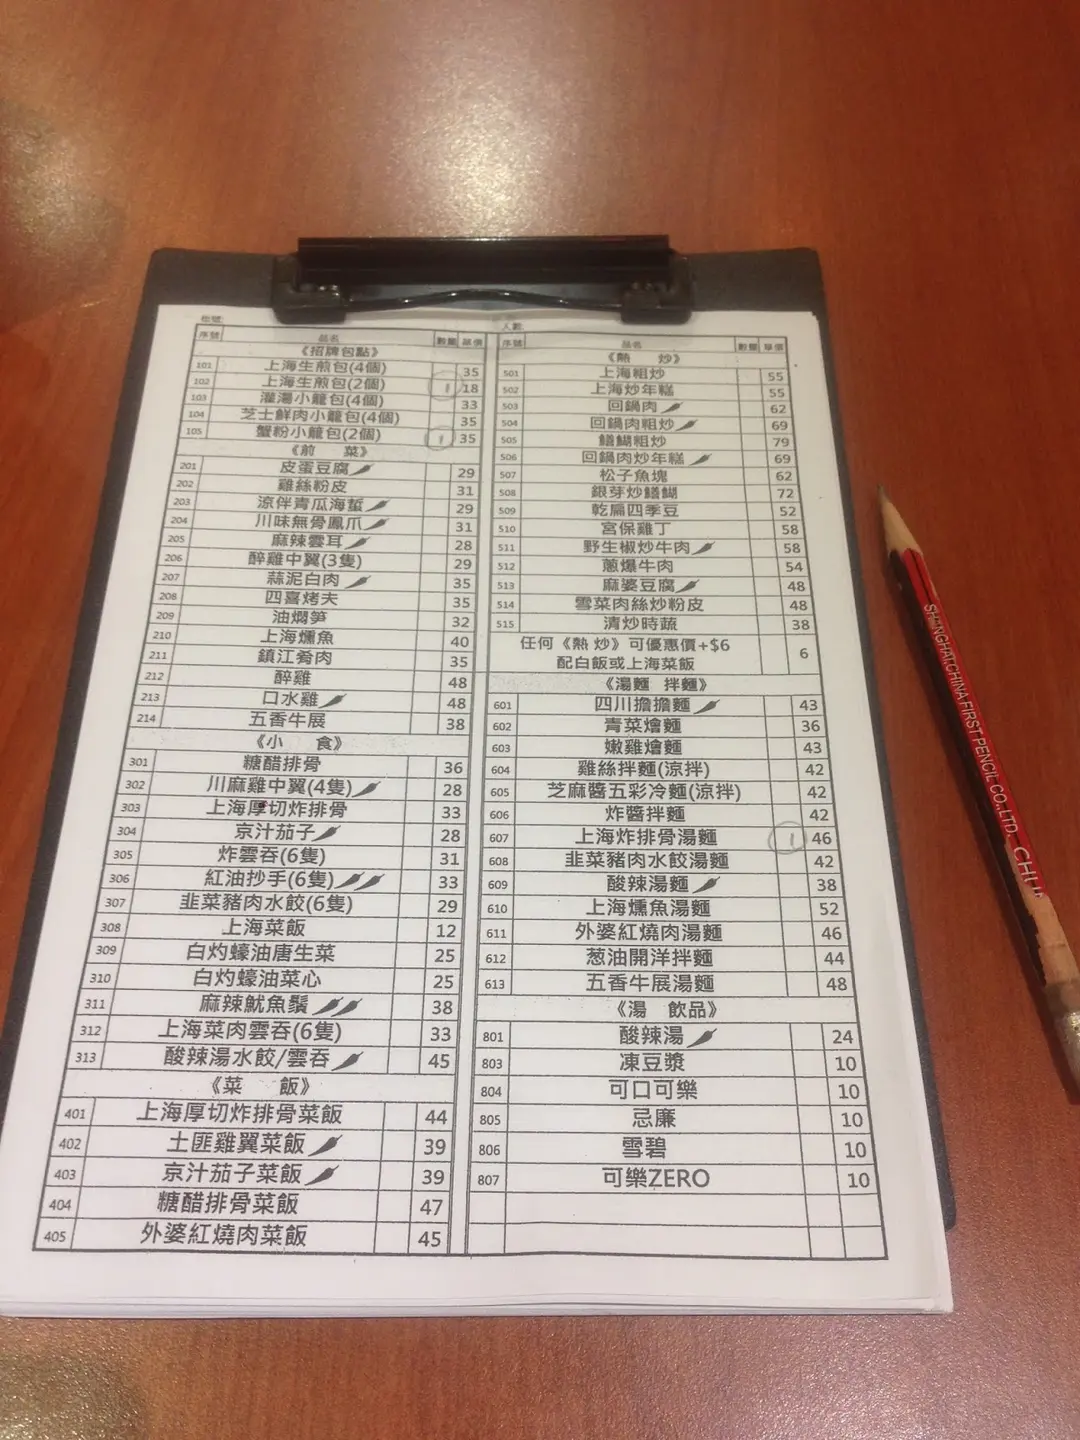 枱號:
序號 品名 數量 單價
《招牌包點》
101 上海生煎包(4個) 35
102 上海生煎包(2個) 1 18
103 灌湯小籠包(4個) 33
104 芝士鮮肉小籠包(4個) 35
105 蟹粉小籠包(2個) 1 35
《前 菜》
201 皮蛋豆腐 29
202 雞絲粉皮 31
203 涼伴青瓜海蜇 29
204 川味無骨鳳爪 31
205 麻辣雲耳 28
206 醉雞中翼(3隻) 29
207 蒜泥白肉 35
208 四喜烤夫 35
209 油燜筍 32
210 上海燻魚 40
211 鎮江肴肉 35
212 醉雞 48
213 口水雞 48
214 五香牛展 38
《小 食》
301 糖醋排骨 36
302 川麻雞中翼(4隻) 28
303 上海厚切炸排骨 33
304 京汁茄子 28
305 炸雲吞(6隻) 31
306 紅油抄手(6隻) 33
307 韭菜豬肉水餃(6隻) 29
308 上海菜飯 12
309 白灼蠔油唐生菜 25
310 白灼蠔油菜心 25
311 麻辣魷魚鬚 38
312 上海菜肉雲吞(6隻) 33
313 酸辣湯水餃/雲吞 45
《菜 飯》
401 上海厚切炸排骨菜飯 44
402 土匪雞翼菜飯 39
403 京汁茄子菜飯 39
404 糖醋排骨菜飯 47
405 外婆紅燒肉菜飯 45
人數:
序號 品名 數量 單價
《熱 炒》
501 上海粗炒 55
502 上海炒年糕 55
503 回鍋肉 62
504 回鍋肉粗炒 69
505 鱔餬粗炒 79
506 回鍋肉炒年糕 69
507 松子魚塊 62
508 銀芽炒鱔餬 72
509 乾扁四季豆 52
510 宮保雞丁 58
511 野生椒炒牛肉 58
512 蔥爆牛肉 54
513 麻婆豆腐 48
514 雪菜肉絲炒粉皮 48
515 清炒時蔬 38
任何《熱 炒》可優惠價+$6
配白飯或上海菜飯 6
《湯麵 拌麵》
601 四川擔擔麵 43
602 青菜燴麵 36
603 嫩雞燴麵 43
604 雞絲拌麵(涼拌) 42
605 芝麻醬五彩冷麵(涼拌) 42
606 炸醬拌麵 42
607 上海炸排骨湯麵 1 46
608 韭菜豬肉水餃湯麵 42
609 酸辣湯麵 38
610 上海燻魚湯麵 52
611 外婆紅燒肉湯麵 46
612 葱油開洋拌麵 44
613 五香牛展湯麵 48
《湯 飲品》
801 酸辣湯 24
803 凍豆漿 10
804 可口可樂 10
805 忌廉 10
806 雪碧 10
807 可樂ZERO 10
SHANGHAI,CHINA FIRST PENCIL CO.,LTD.